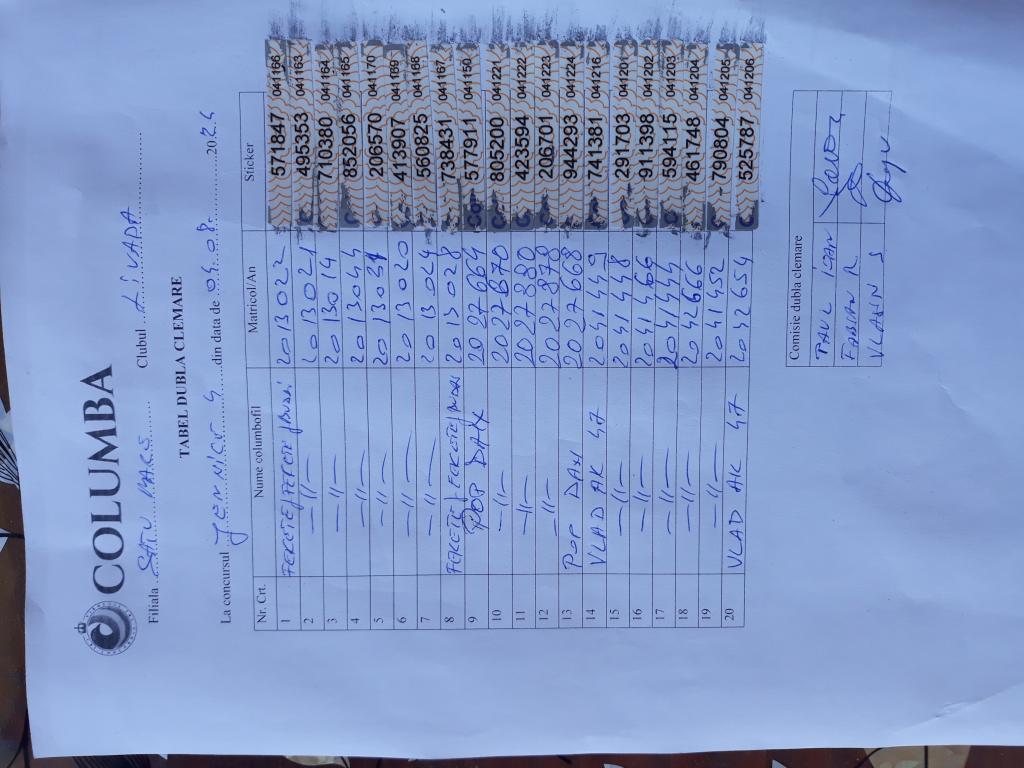 COLUMBA
Filiala SATU MARE Clubul LIVADA
TABEL DUBLA CLEMARE
La concursul din data de 04.08. 2024
Nr. Crt. Nume columbofil Matricol/An Sticker
1 FEKETE/FEKETE 2013022 571847 041166
2 —11— 2013021 495353 041163
3 —11— 2013014 710380 041164
4 —11— 2013044 852056 041165
5 —11— 20130 206570 041170
6 —11— 2013020 413907 041169
7 —11— 2013024 560825 041168
8 FEKETE/FEKETE 2013028 738431 041167
9 POP DAN 2027664 577911 041150
10 —11— 2027670 805200 041221
11 —11— 2027880 423594 041222
12 —11— 2027878 206701 041223
13 POP DAN 2027668 944293 041224
14 VLAD AK 47 2041449 741381 041216
15 —11— 2041448 291703 041201
16 —11— 2041466 911398 041202
17 —11— 2041444 594115 041203
18 —11— 2042666 461748 041204
19 —11— 2041452 790804 041205
20 VLAD AK 47 2042654 525787 041206
Comisie dubla clemare
PAUL IOAN
FABIAN R
VLASIN S